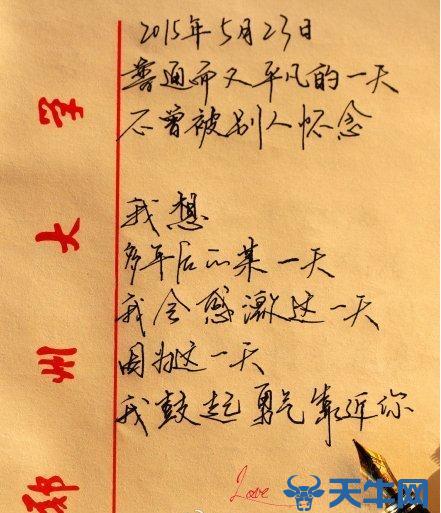 2015年5月23日
普通而又平凡的一天
不曾被别人怀念
我想
多年后的某一天
我会感激这一天
因为这一天
我鼓起勇气靠近你
Love
郑州大学
天牛网